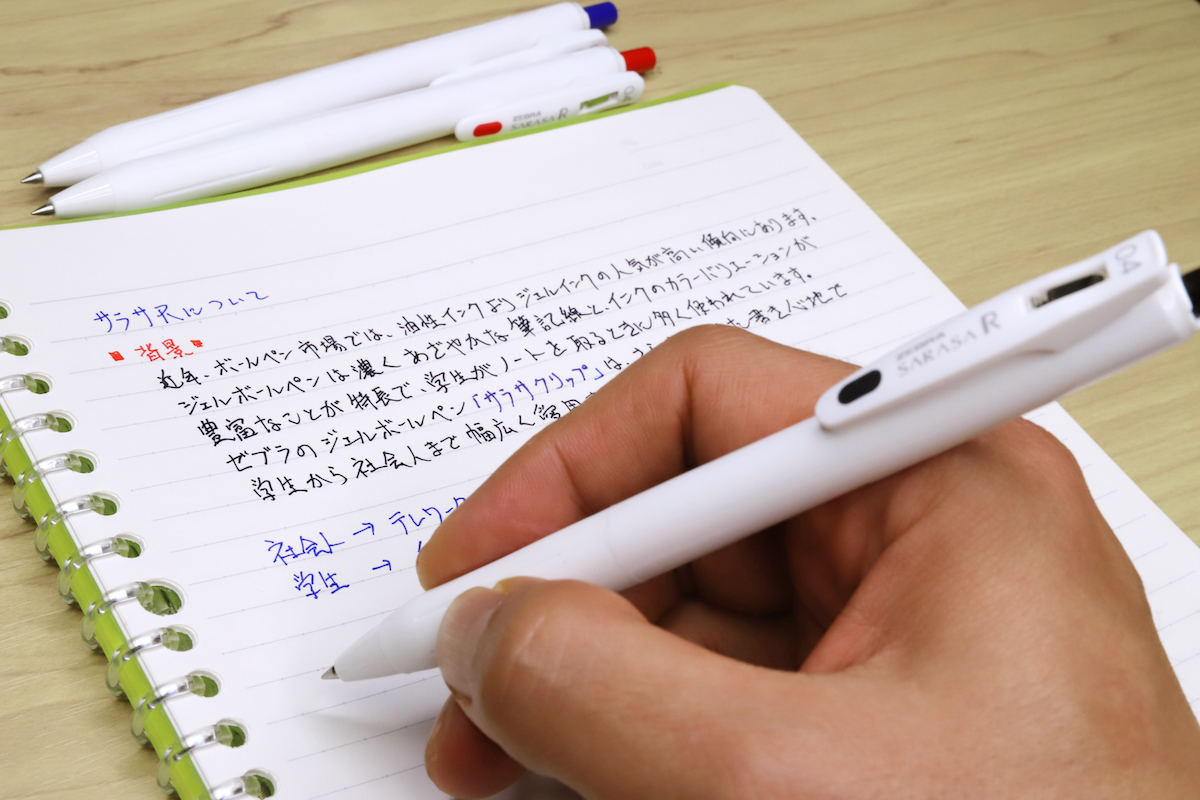 ZEBRA
SARASA R
サラサRについて
■ 背景 ■
近年、ボールペン市場では、油性インクよりジェルインクの人気が高い傾向にあります。
ジェルボールペンは濃くあざやかな筆記線と、インクのカラーバリエーションが
豊富なことが特長で、学生がノートを取るときに多く使われています。
ゼブラのジェルボールペン「サラサクリップ」は、 書き心地で
学生から社会人まで幅広く
社会人 → テレワーク
学生 →
04
ZEBRA
SARASA R